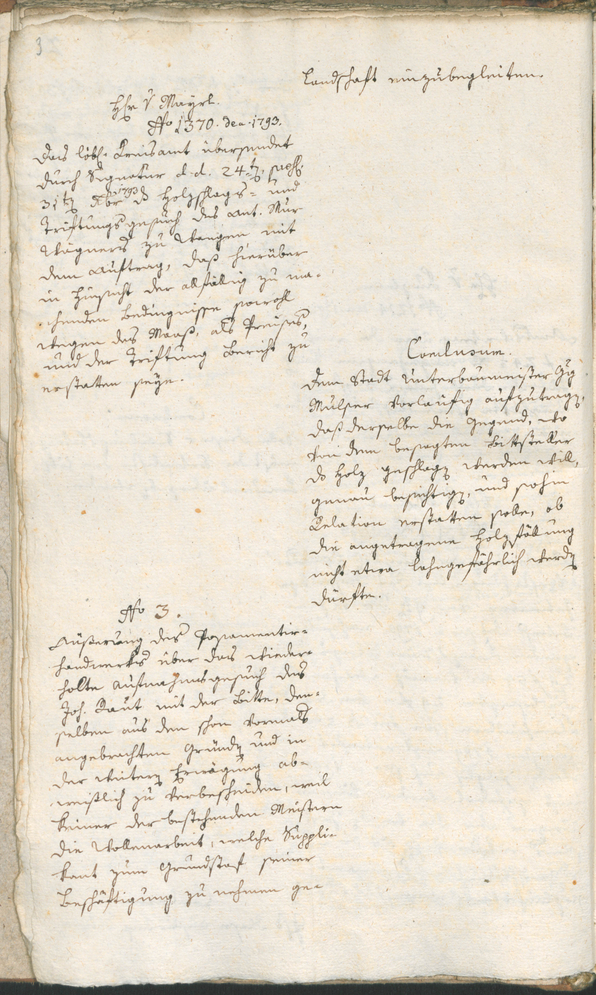 3
Landschaft einzubegleiten.
Hr v Mayrl.
No 1370. de a. 1793.
Das löbl. Kreisamt übersendet
durch Signatur d. d. 24t, præs.
31t Xbr 1793 ds Holzschlags- und
Triftungsgesuch des Ant. Mur
Wagners zu Wangen mit
dem Auftrag, daß hierüber
in Hinsicht der allfällig zu ma-
chenden Bedingnisse sowohl
wegen des Maaß, als Preises,
und der Triftung Bericht zu
erstatten seye.
Conclusum.
Dem Stadt Unterbaumeister
Mulser vorläufig aufzutragen,
daß derselbe die Gegend, wo
von dem besagten Bittsteller
ds Holz geschlagen werden will,
genau besichtigen, und sohin
Relation erstatten solle, ob
die angetragene Holzfällung
nicht etwa lahngefährlich werden
dürfte.
No 3.
Äußerung des Posamentir-
handwerks über das wieder-
holte Aufnahmsgesuch des
Joh. Kaut mit der Bitte, den-
selben aus den schon vormals
angebrachten Gründen und in
der weitern Erwägung ab-
weislich zu verbescheiden, weil
keiner der bestehenden Meistern
die Wollenarbeit, welche Suppli-
kant zum Grundstof seiner
Beschäftigung zu nehmen ge-